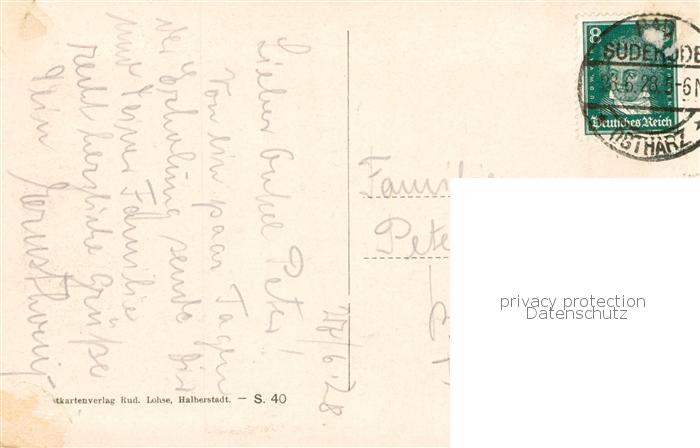 27/6.28.
Lieber Onkel Peter!
Von ein paar Tagen
der Erholung sende Dir
und Deiner Familie
recht herzliche Grüße
Dein
Familie
Pete
8
Deutsches Reich
BAD
SUDERODE
28.6.28.5-6N
OSTHARZ
privacy protection
Datenschutz
tkartenverlag Rud. Lohse, Halberstadt. — S. 40